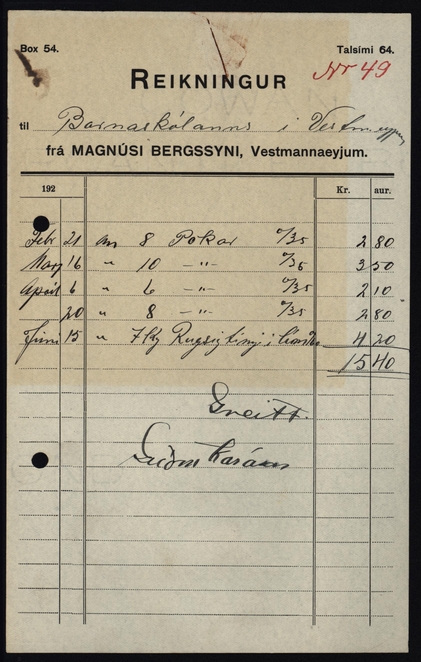 Box 54.
Talsími 64.
REIKNINGUR
Nr 49
til Barnaskólanns í Vestm.eyjum
frá MAGNÚSI BERGSSYNI, Vestmannaeyjum.
192 Kr. aur.
Febr 21 8 Pokar %35 2 80
Marz 16 " 10 -"- %35 3 50
Apríl 6 " 6 -"- %35 2 10
20 " 8 -"- %35 2 80
Júní 15 " 7 kg 4 20
15 40
Greitt.